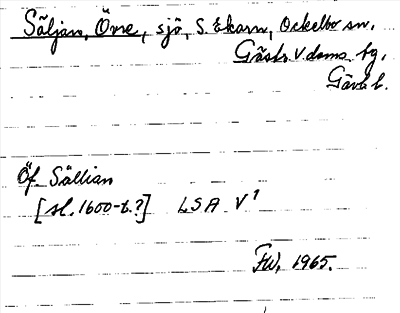 Säljan, Övre, sjö, S. Åkarn, Ockelbo sn,
Gästr. V. doms. fg,
Gävleb. l.
Öf. Sällian
[sl. 1600-t.?] LSA V¹
FW, 1965.